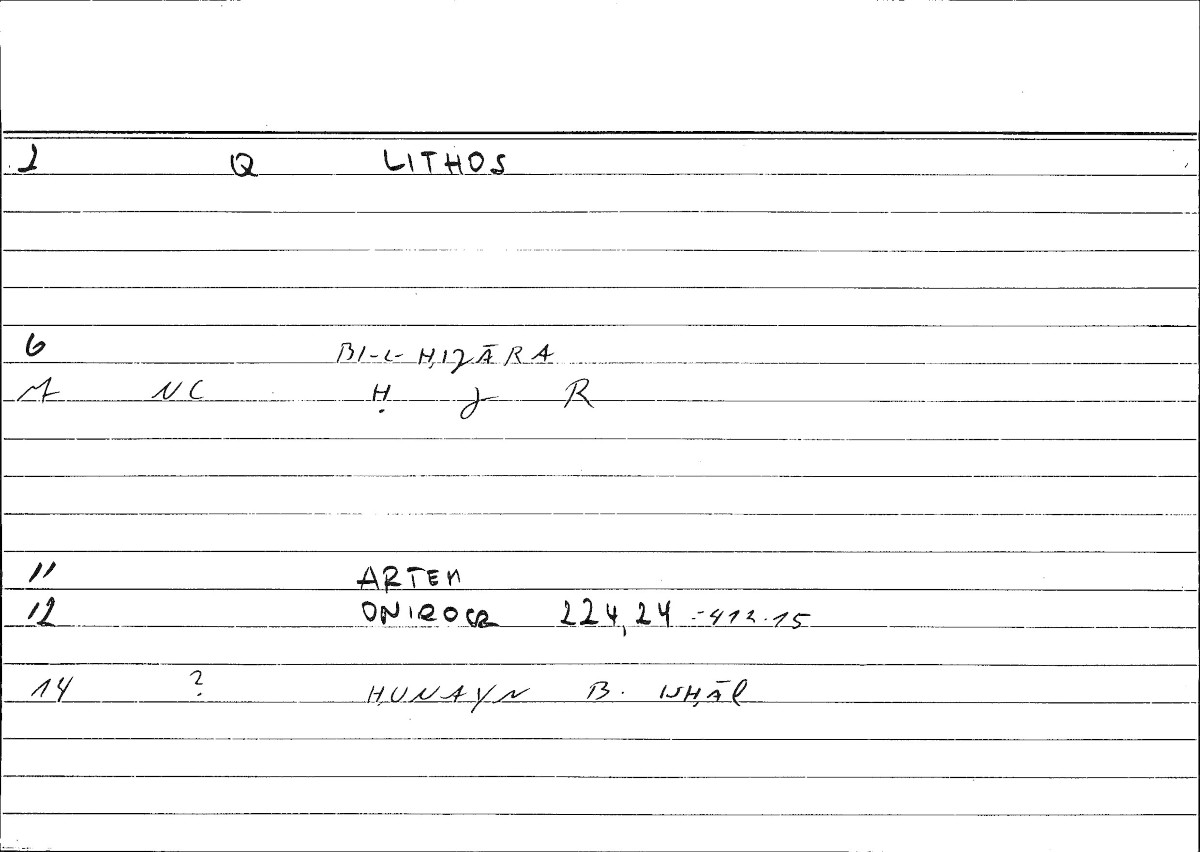 1 Q LITHOS
6 BI-L-ḤIJĀRA
NC Ḥ J R
11 ARTEM
12 ONIROCR 224,24 =412.15
14 ? ḤUNAYN B. ISḤĀQ